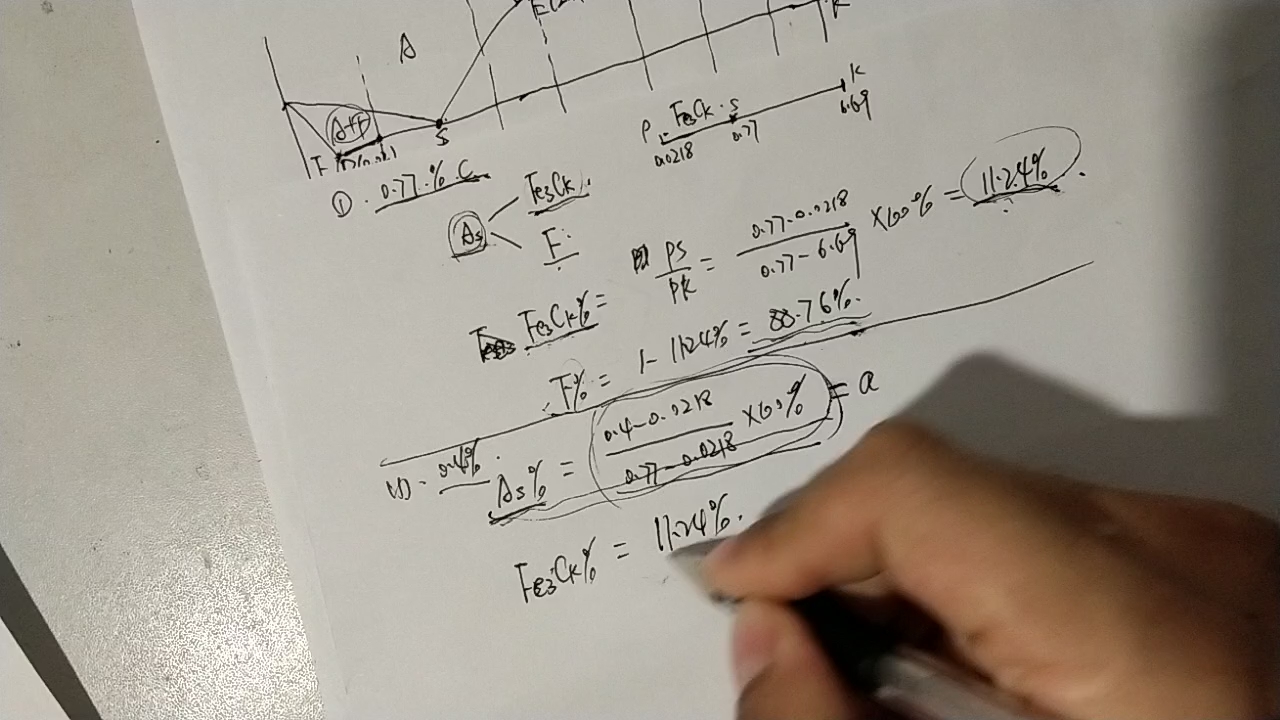 A
A+F
S
K
P Fe3Ck · S
0.0218 0.77 6.69
① 0.77% C
As
Fe3Ck
F
Fe3Ck% = PS/PK = 0.77-0.0218/0.77-6.69 ×100% = 11.24%
F% = 1-11.24% = 88.76%.
0.4%.
As% = 0.4-0.0218/0.77-0.0218 ×100% = a
Fe3Ck% = 11.24%.